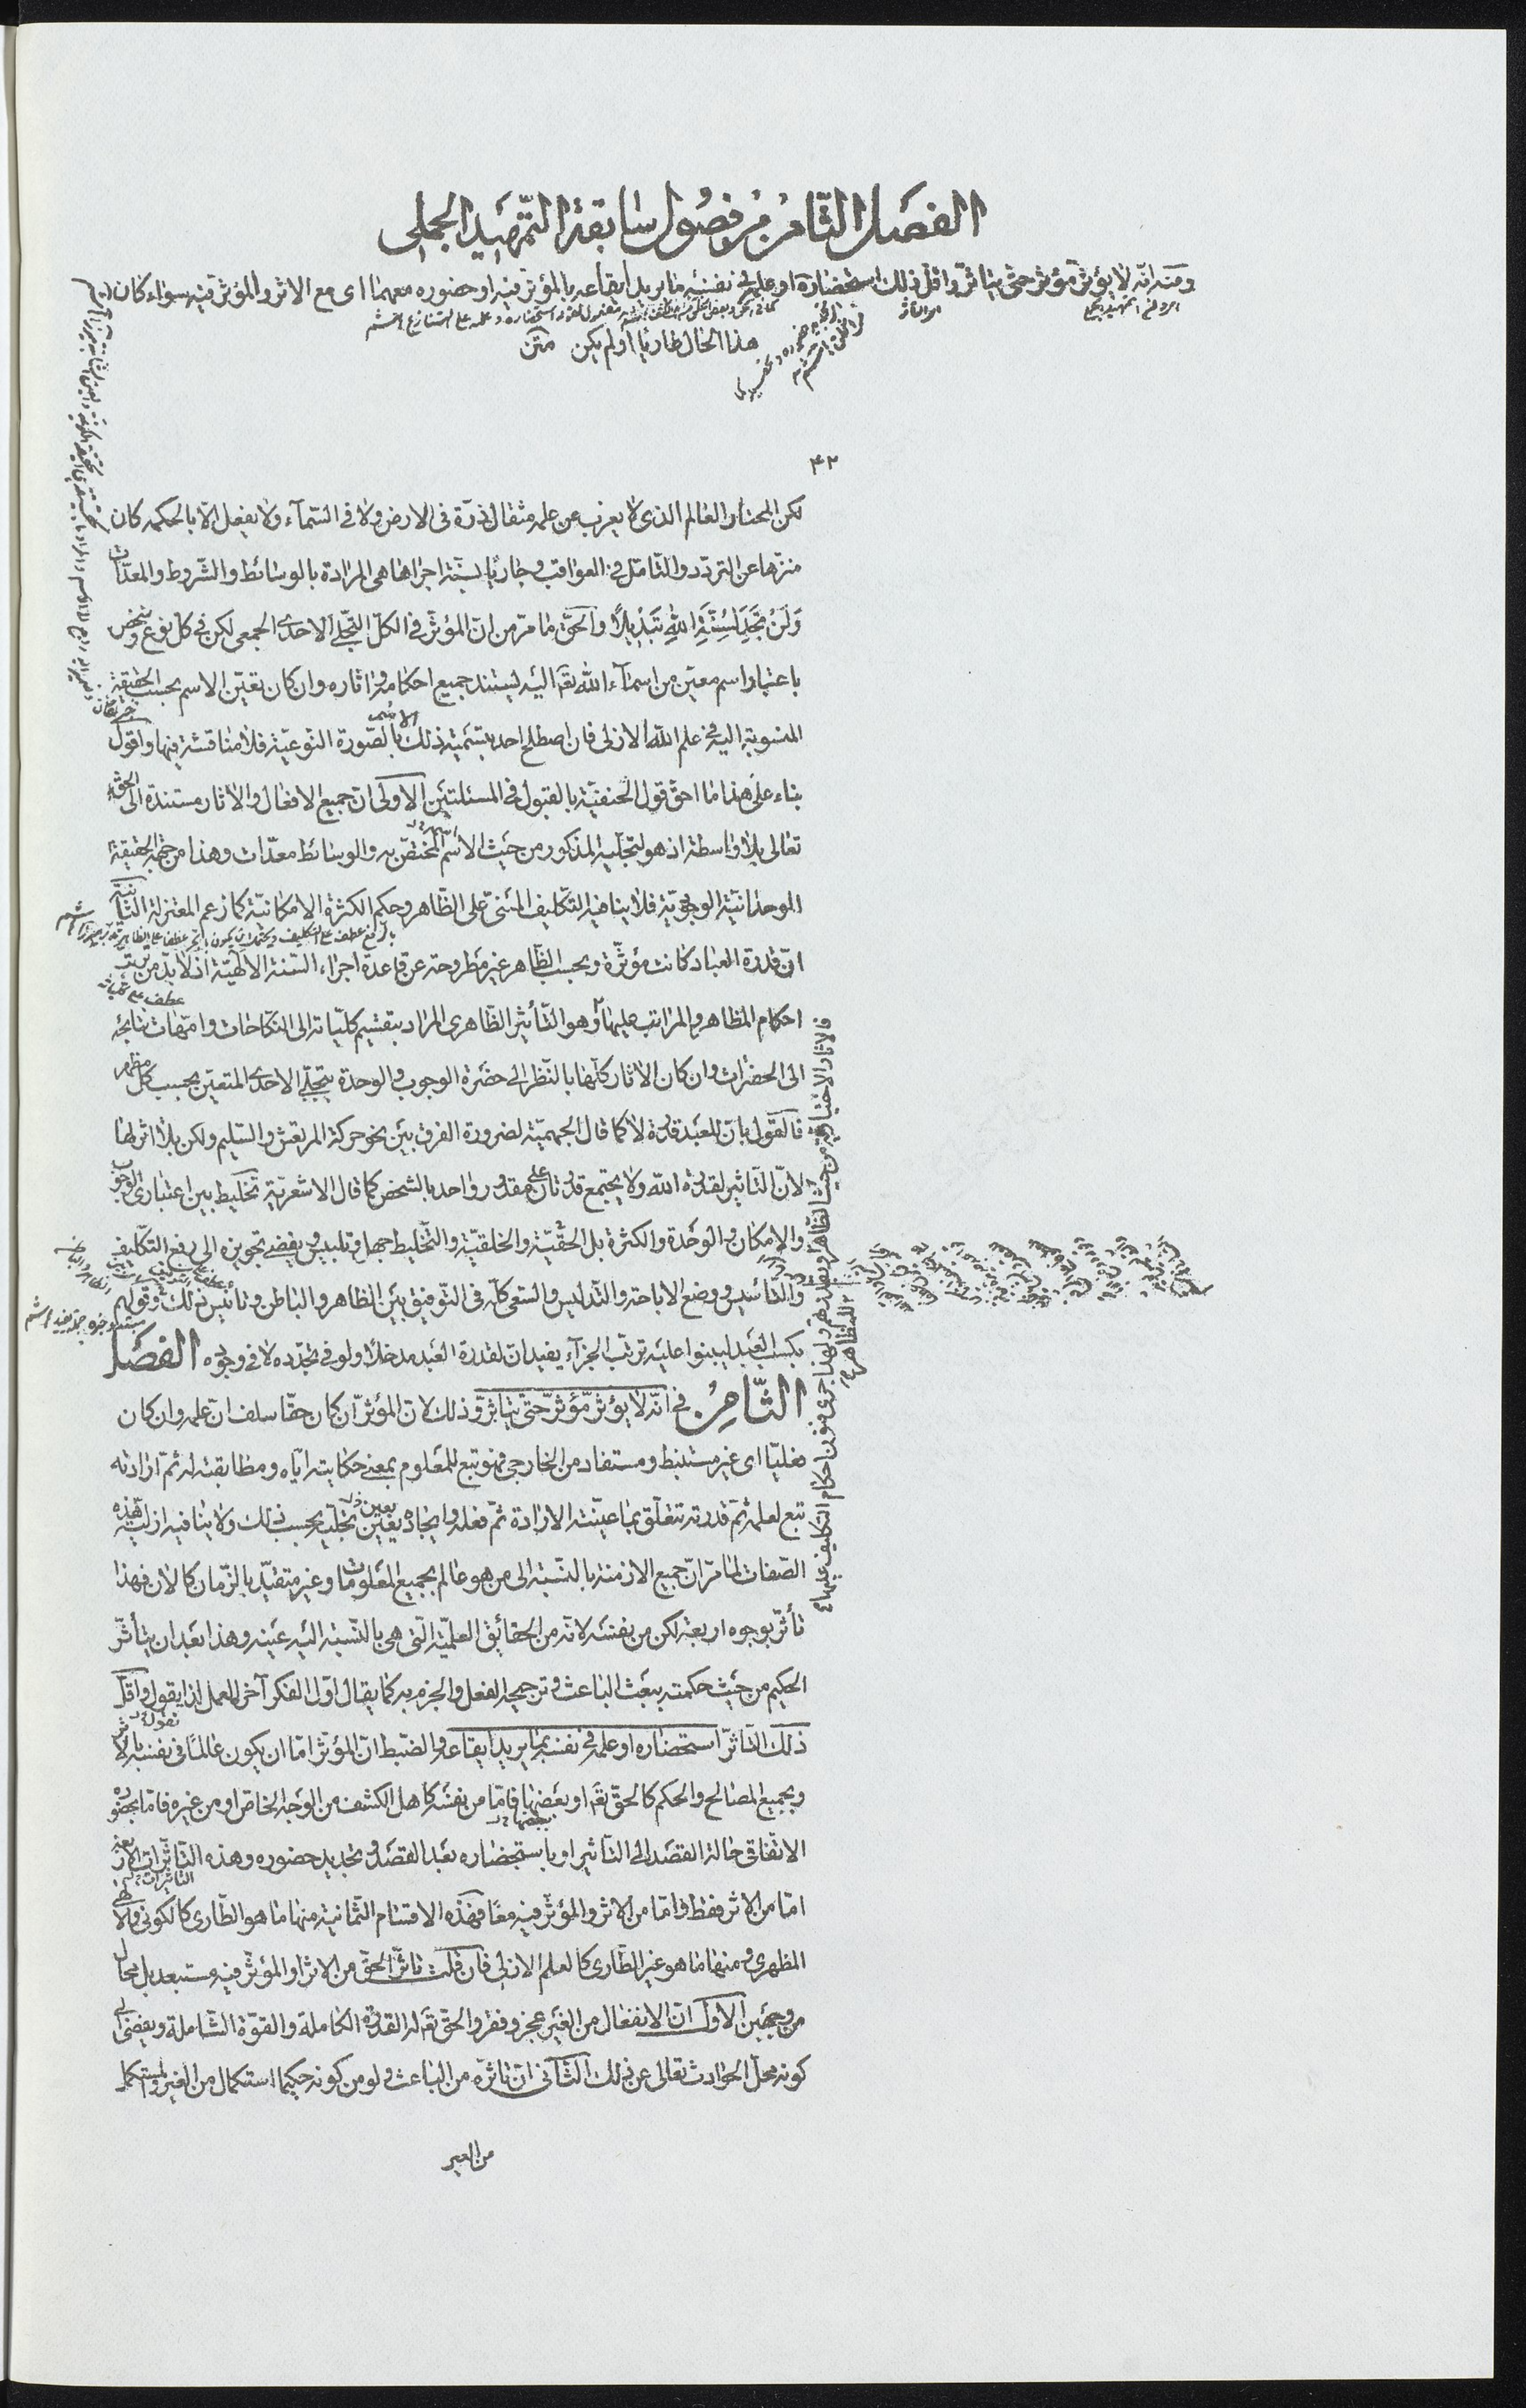 الفصل الثامن من فصول سابقة التمهيد الجملى
ومنه انّه لا يؤثر مؤثر حتى يتاثر واقل ذلك استحضاره او علمه فى نفسه ما يريد ايقاعه بالمؤثر فيه او حضوره معهما اى مع الاثر والمؤثر فيه سواء كان
هذا الحال طاريا او لم يكن متن
۴۲
لكن المختار العالم الذى لا يعزب عن علمه مثقال ذرة فى الارض ولا فى السّمآء ولا يفعل الّا بالحكمة كان
منزّها عن التردّد والتّامّل فى العواقب وجاريًا بسنّة اجراها هى المرادة بالوسائط والشّروط والمعدّات
وَلَنْ تَجِدَ لِسُنَّةِ اللهِ تَبْدِيلًا والحقّ ما مرّ من انّ المؤثّر فى الكلّ التّجلّى الاحدى الجمعى لكن فى كل نوع وشخص
باعتبار اسم معيّن من اسمآء الله تعَ اليه يستند جميع احكامه واثاره وان كان تعيّن الاسم بحسب الحقيقة
المنسوبة اليه فى علم الله الازلى فان اصطلح احد بتسمية ذلك الاسم بالصّورة النّوعيّة فلا مناقشة فيها واقول
بناء على هذا ما احقّ قول الحنفيّة بالقبول فى المسئلتين الاولى ان جميع الافعال والاثار مستندة الى الحق
تعالى بلا واسطة اذ هو لتجلّيه المذكور من حيث الاسم المختصّ به والوسائط معدّات وهذا من جهة الحقيقة
الوحدانيّة الوجوبيّة فلا ينافيه التّكليف المبنىّ على الظّاهر وحكم الكثرة الامكانيّة كما زعم المعتزلة الثّانية
انّ قدرة العباد كانت مؤثّرة وبحسب الظّاهر غير مطروحة عن قاعدة اجراء السّنة الالهيّة اذ لا بدّ من ترتّب
احكام المظاهر والمراتب عليها وهو التّأثير الظّاهرى المراد بتقسيم كلّياته الى النّكاحات وامّهات نتايجه
الى الحضرات وان كان الاثار كلّها بالنّظر الى حضرة الوجوب والوحدة بتجلّى الاحدى المتعيّن بحسب كل مظهر
فالقول بانّ للعبد قدرة لا كما قال الجهميّة لضرورة الفرق بين نحو حركة المرتعش والسّليم ولكن بلا اثر لها
لانّ التّاثير لقدرة الله ولا يجتمع قدرتان على مقدور واحد بالشخص كما قال الاشعريّة تخليط بين اعتبارى الوجوب
والامكان والوحدة والكثرة بل الحقّيّة والخلقيّة والتّخليط جهل وتلبيس ويفضى تجويزه الى رفع التّكليف
والتّأسيس ووضع الاباحة والتّدليس والسّعى كلّه فى التّوفيق بين الظاهر والباطن وتأنيس ذلك وقولهم
بكسب العبد ليبنوا عليه ترتّب الجزآء يفيد ان لقدرة العبد مدخلًا ولو فى تجدّده لا فى وجوده الفصل
الثّامن فى انّه لا يؤثّر مؤثّر حتّى يتاثّر وذلك لان المؤثّر ان كان حقّا سلف ان علمه وان كان
فعليّا اى غير مستنبط ومستفاد من الخارجى فهو تبع للمعلوم بمعنى حكايته ايّاه ومطابقته له ثمّ ارادته
تبع لعلمه ثمّ قدرته تتعلّق بما عيّنته الارادة ثمّ فعله وايجاده يعيّن تجلّيه بحسب ذلك ولا ينافيه ازليّة هذه
الصّفات لما مرّ انّ جميع الازمنة بالنّسبة الى من هو عالم بجميع المعلومات وغير متقيّد بالزّمان كالان فهذا
تأثّر بوجوه اربعة لكن من نفسه لانّه من الحقائق العلميّة الّتى هى بالنّسبة اليه عينه وهذا بعد ان يتأثّر
الحكيم من حيث حكمته ببعث الباعث وترجيحه الفعل والجزم به كما يقال اوّل الفكر آخر العمل اذا يقول واقلّ
ذلك التّاثّر استحضاره او علمه فى نفسه بما يريد ايقاعه والضّبط انّ المؤثّر امّا ان يكون عالمًا فى نفسه بالاثر
وبجميع المصالح والحكم كالحقّ تعَ او بعضها فامّا من نفسه كاهل الكشف من الوجه الخاصّ او من غيره فامّا بحضوره
الاتّفاقى حالة القصد الى التّاثير او باستحضاره بعد القصد وتجديد حضوره وهذه التّأثّرات الاربعة
امّا من الاثر فقط وامّا من الاثر والمؤثّر فيه معًا فهذه الاقسام الثّمانية منها ما هو الطّارى كالكونى والالهى
المظهرى ومنها ما هو غير الطّارى كالعلم الازلى فان قلت تاثّر الحقّ من الاثر او المؤثّر فيه مستبعد بل محال
من وجهين الاوّل انّ الانفعال من الغير عجز وفقر والحقّ تعَ له القدرة الكاملة والقوّة الشّاملة ويفضى الى
كونه محلّ الحوادث تعالى عن ذلك الثّانى انّ تاثّره من الباعث ولو من كونه حكيما استكمال من الغير والمستكمل
من الغير
فالاثار الاختيارية من حيث الظّاهر وبقدرتهم ولهذا جرى فنون احكام التكليف عليها